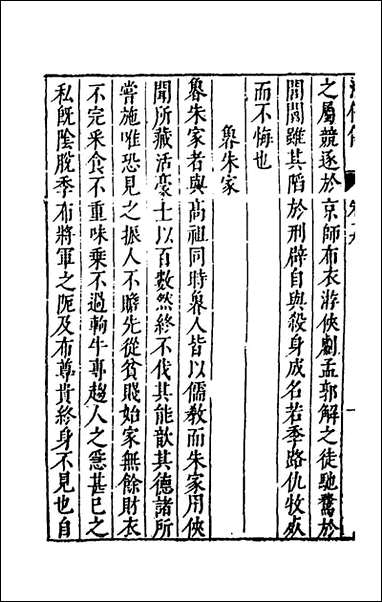 之屬競逐於京師布衣游俠劇孟郭解之徒馳騖於
閭閻雖其䧟於刑辟自與殺身成名若季路仇牧死
而不悔也
魯朱家
魯朱家者與高祖同時魯人皆以儒教而朱家用俠
聞所藏活豪士以百數然終不伐其能歆其德諸所
嘗施唯恐見之振人不贍先從貧賤始家無餘財衣
不完采食不重味乗不過軥牛專趨人之急甚已之
私旣陰脫季布將軍之阨及布尊貴終身不見也自